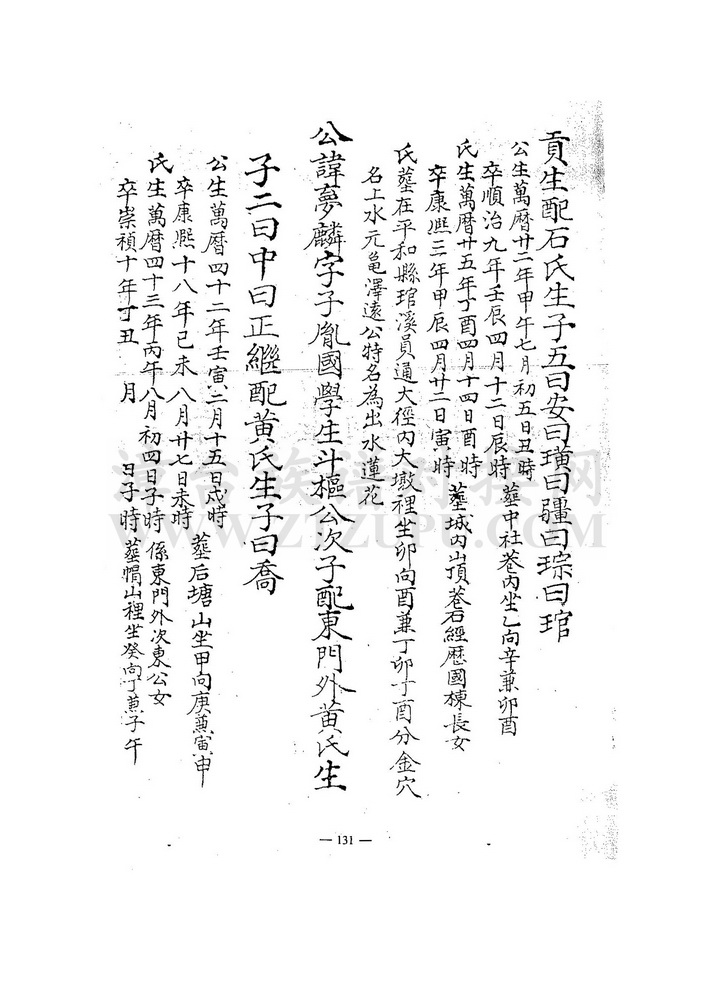 貢生配石氏生子五曰安曰璜曰疆曰琮曰琯
公生萬曆廿二年甲午七月初五日丑時
卒順治九年壬辰四月十二日辰時
葬中社菴內坐乙向辛兼卯酉
氏生萬曆廿五年丁酉四月十四日酉時
卒康熙三年甲辰四月廿二日寅時
葬城內山頂菴石經歷國棟長女
氏葬在平和縣琯溪員通大徑內大墩裡坐卯向酉兼丁卯丁酉分金穴
名上水元龜澤遠公特名為出水蓮花
公諱夢麟字子胤國學生斗樞公次子配東門外黃氏生
子二曰中曰正繼配黃氏生子曰喬
公生萬曆四十二年壬寅二月十五日戌時
卒康熙十八年己未八月廿七日未時
葬后塘山坐甲向庚兼寅申
氏生萬曆四十三年丙午八月初四日子時
卒崇禎十年丁丑 月 日子時
係東門外次東公女
葬帽山裡坐癸向丁兼子午
漳台族譜對接網
WWW.ZTZUPU.COM
— 131 —